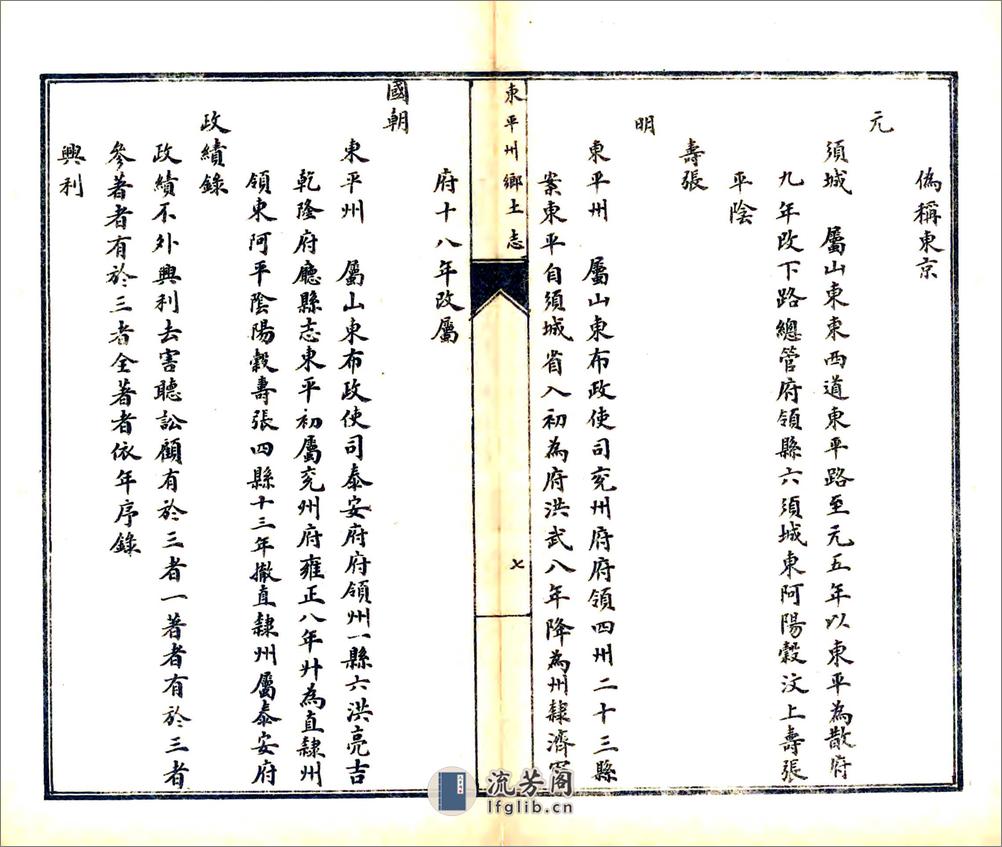 偽稱東京
元
須城　屬山東東西道東平路至元五年以東平為散府
九年改下路總管府領縣六須城東阿陽穀汶上壽張
平陰
壽張
明
東平州　屬山東布政使司兖州府府領四州二十三縣
案東平自須城省入初為府洪武八年降為州隸濟寧
東平州鄉土志
七
府十八年改屬
國朝
東平州　屬山東布政使司泰安府府領州一縣六洪亮吉
乾隆府廳縣志東平初屬兖州府雍正八年升為直隸州
領東阿平陰陽穀壽張四縣十三年撤直隸州屬泰安府
政績錄
政績不外興利去害聽訟顧有於三者一著者有於三者
參著者有於三者全著者依年序錄
興利
流芳阁
lfglib.cn